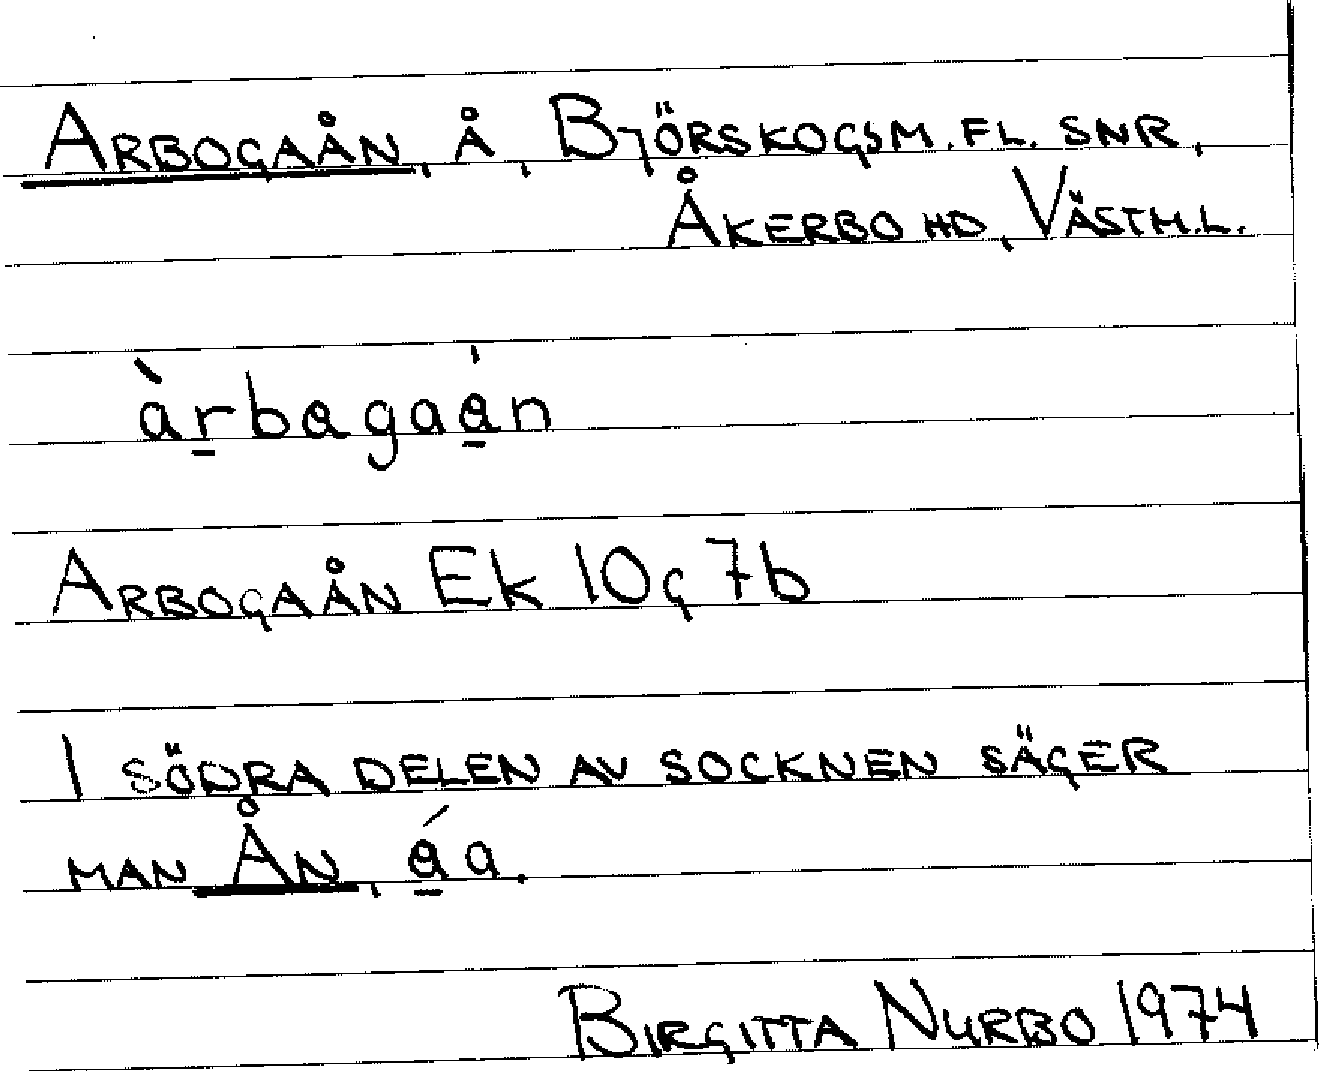 ARBOGAÅN, Å, BJÖRSKOGSM.FL. SNR,
ÅKERBO HD, VÄSTM.L.
àrbagaán
ARBOGAÅN Ek 10g 7b
I SÖDRA DELEN AV SOCKNEN SÄGER
MAN ÅN, áa.
BIRGITTA NURBO 1974